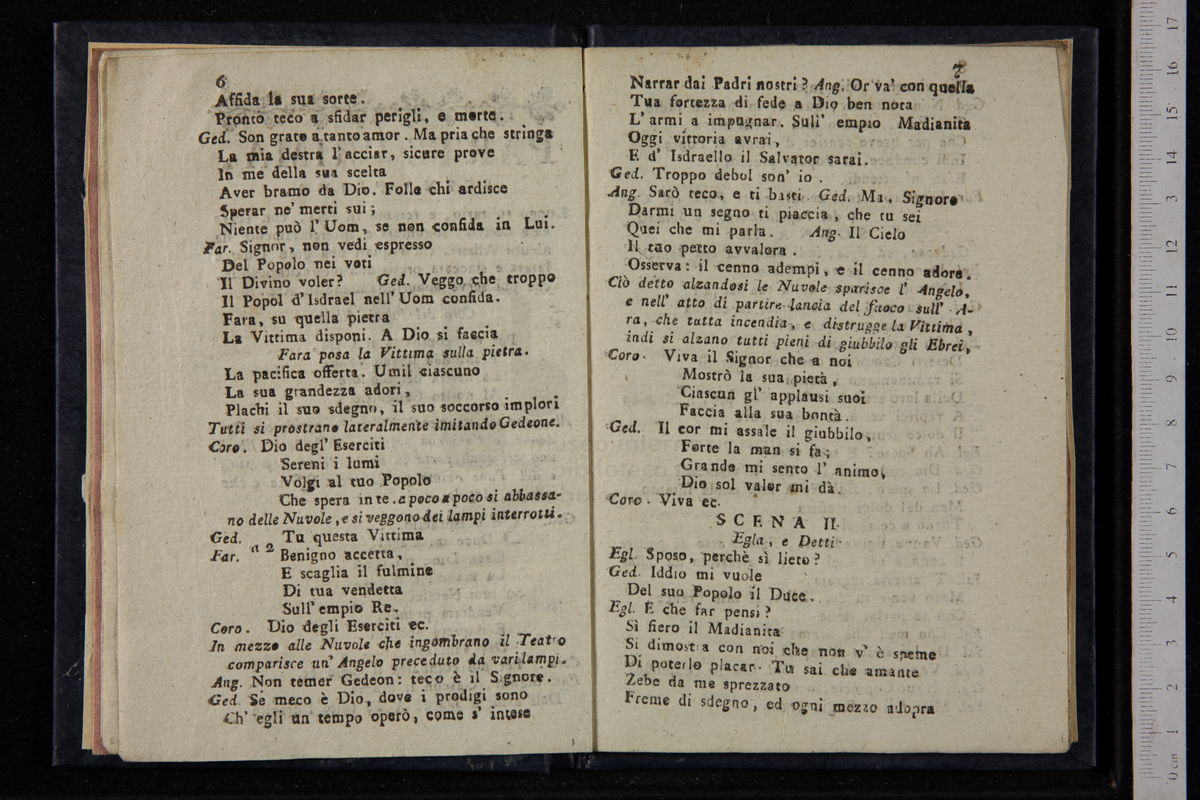 6
Affida la sua sorte.
Pronto teco a sfidar perigli, e morte.
Ged. Son grato a tanto amor. Ma pria che stringa
La mia destra l'acciar, sicure prove
In me della sua scelta
Aver bramo da Dio. Folle chi ardisce
Sperar ne' merti sui;
Niente può l'Uom, se non confida in Lui.
Far. Signor, non vedi espresso
Del Popolo nei voti
Il Divino voler? Ged. Veggo che troppo
Il Popol d'Isdrael nell'Uom confida.
Fara, su quella pietra
La Vittima disponi. A Dio si faccia
Fara posa la Vittima sulla pietra.
La pacifica offerta. Umil ciascuno
La sua grandezza adori,
Plachi il suo sdegno, il suo soccorso implori
Tutti si prostrano lateralmente imitando Gedeone.
Coro. Dio degl' Eserciti
Sereni i lumi
Volgi al tuo Popolo
Che spera in te. a poco a poco si abbassa-
no delle Nuvole, e si veggono dei lampi interrotti.
Ged. Tu questa Vittima
Far. a 2 Benigno accetta,
E scaglia il fulmine
Di tua vendetta
Sull' empio Re.
Coro. Dio degli Eserciti ec.
In mezzo alle Nuvole che ingombrano il Teatro
comparisce un' Angelo preceduto da vari lampi.
Ang. Non temer Gedeon: teco è il Signore.
Ged. Se meco è Dio, dove i prodigi sono
Ch' egli un tempo operò, come s' intese
7
Narrar dai Padri nostri? Ang. Or va' con quella
Tua fortezza di fede a Dio ben nota
L' armi a impugnar. Sull' empio Madianita
Oggi vittoria avrai,
E d' Isdraello il Salvator sarai.
Ged. Troppo debol son' io.
Ang. Sarò teco, e ti basti. Ged. Ma, Signore
Darmi un segno ti piaccia, che tu sei
Quei che mi parla. Ang. Il Cielo
Il tuo petto avvalora.
Osserva: il cenno adempi, e il cenno adora.
Ciò detto alzandosi le Nuvole sparisce l' Angelo,
e nell' atto di partire lancia del fuoco sull' A-
ra, che tutta incendia, e distrugge la Vittima,
indi si alzano tutti pieni di giubbilo gli Ebrei,
Coro. Viva il Signor che a noi
Mostrò la sua pietà,
Ciascun gl' applausi suoi
Faccia alla sua bontà.
Ged. Il cor mi assale il giubbilo,
Forte la man si fa;
Grande mi sento l' animo,
Dio sol valor mi dà.
Coro. Viva ec.
SCENA II.
Egla, e Detti
Egl. Sposo, perchè sì lieto?
Ged. Iddio mi vuole
Del suo Popolo il Duce.
Egl. E che far pensi?
Sì fiero il Madianita
Si dimostra con noi che non v' è speme
Di poterlo placar. Tu sai che amante
Zebe da me sprezzato
Freme di sdegno, ed ogni mezzo adopra